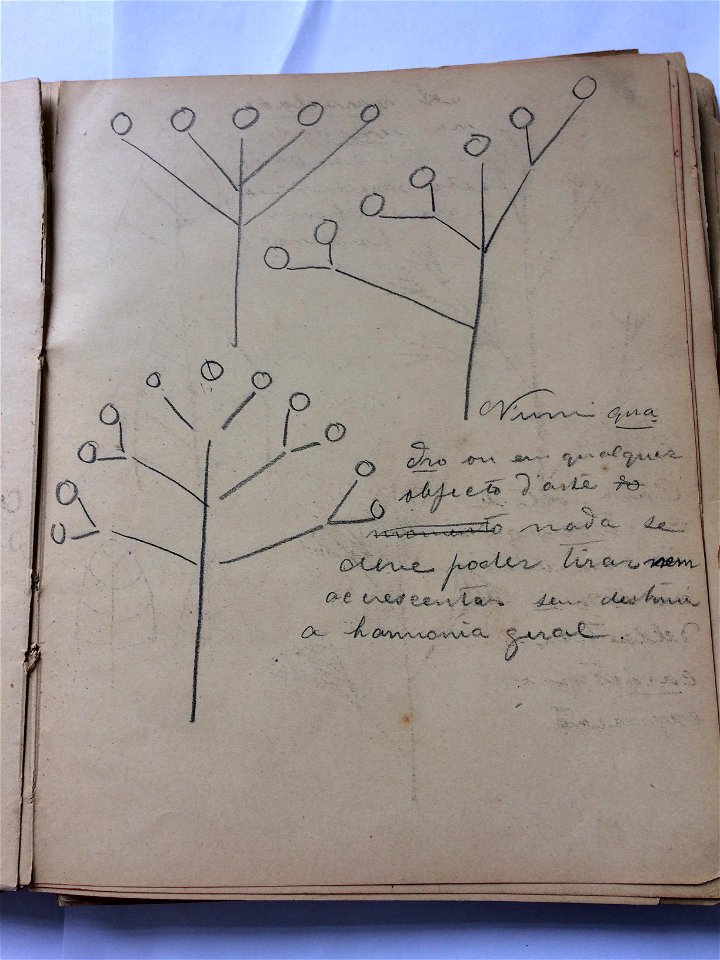 Num qua
dro ou em qualquer
objecto d'arte do
momento nada se
deve poder tirar nem
accrescentar sem destruir
a harmonia geral.